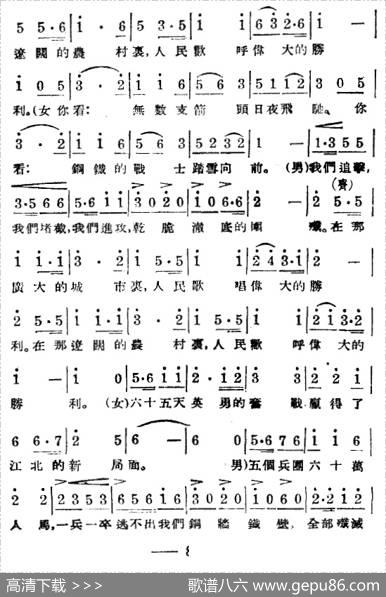 5 5·6 | i · 6 | 3 · 2 | 5 5·5 | i i | 6 3 2·6 | i — |
遼闊的農 村裏，人民歡 呼偉大的勝
i 0 5 | 3 · 2 | i i 6 | 5 6 3 | 5 1 1 2 | 3 0 5 |
利。(女你看： 無數支箭 頭日夜飛 馳。你
3 · 2 | i i 6 | 5 6 3 | 5 2 3 2 | 1 — | 1·3 5 5 |
看： 鋼鐵的戰 士踏雪向 前。(男)我們追擊，
(齊)
3·5 6 6 | 5·6 i i | 3 0 2 0 | i 0 6·6 | 2 — | 2 5·5 |
我們堵截，我們進攻，乾脆澈底的圍 殲。在那
i i·i | 3 · 2 | i 5·5 | i i | 2 4 3·i | 2 — |
廣大的城 市裏，人民歌 唱偉大的勝
2 5·5 | i i·i | 3 · 2 | i 5·5 | i i | 2 i 3·2 |
利。在那遼闊的農 村裏，人民歡 呼偉大的
i — | i 0 | 5·6 i i | 2 · i 2 | 3 3 | 2 2 i |
勝 利。(女)六十五天英勇的奮 戰，贏得了
6 6·7 | 2 5 | 6 — | 6 0 | 5·6 7 6 | i i 6 |
江北的新 局面。 男)五個兵團六十萬
2 2 | 2 3 5 3 | 6 5 6 1 6 | 3 0 2 0 | i 0 6 0 | 2·2 i 2 |
人馬，一兵一卒逃不出我們銅牆鐵壁，全部殲滅
— 8
高清下载 >>>
歌谱八六 www.gepu86.com